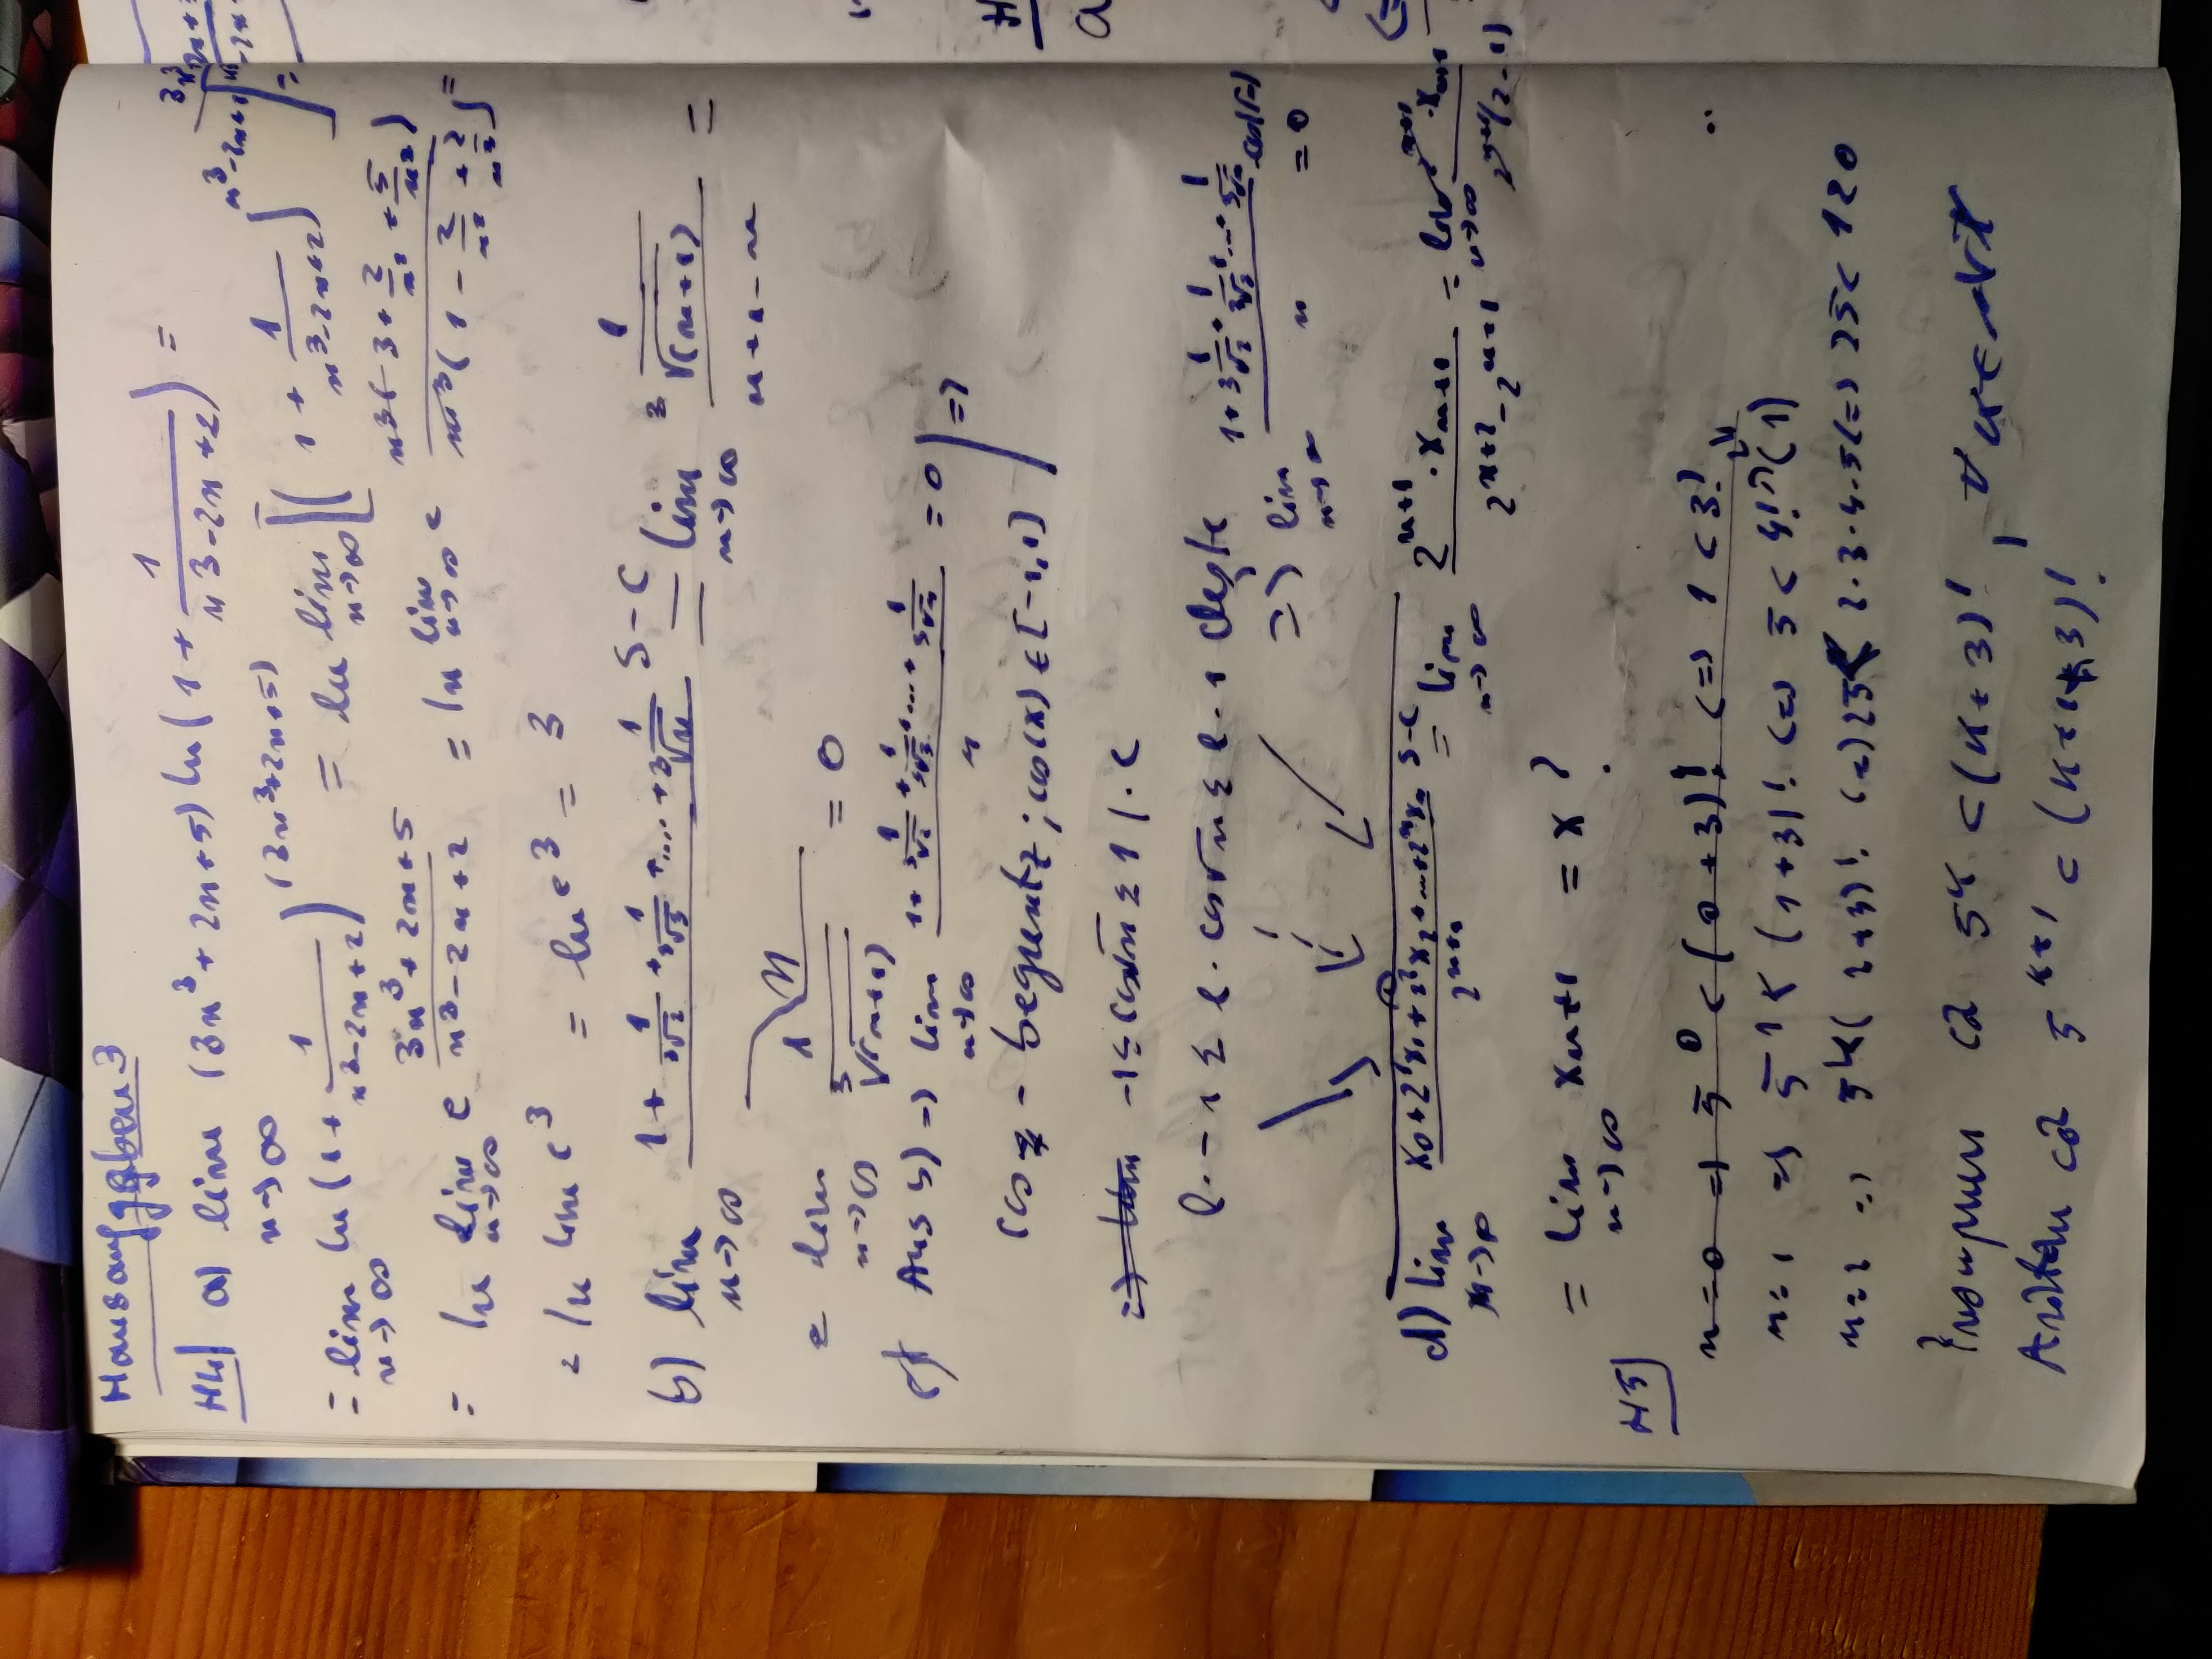 Hausaufgaben 3
H4) a) lim n→∞ (3n³+2n+5) ln(1 + 1/(n³-2n+2)) =
= lim n→∞ ln(1 + 1/(n³-2n+2))^(3n³+2n+5) = ln lim n→∞ [(1 + 1/(n³-2n+2))^(n³-2n+2)]^((3n³+2n+5)/(n³-2n+2)) =
= ln lim n→∞ e^((3n³+2n+5)/(n³-2n+2)) = ln lim n→∞ e^(n³(3 + 2/n² + 5/n³)/(n³(1 - 2/n² + 2/n³))) =
= ln lim e³ = ln e³ = 3
b) lim n→∞ (1 + 1/∛2 + 1/∛3 + .... + 1/∛n)/n S-C = lim n→∞ (1/∛(n+1))/(n+1-n) =
= lim n→∞ 1/∛(n+1) = 0
c) Aus b) => lim n→∞ (1 + 1/∛2 + 1/∛3 + ... + 1/∛n)/n = 0 | =>
cos - begrentz; cos(x) ∈ [-1,1]
-1 ≤ cos√n ≤ 1 | · l
l · -1 ≤ l · cos√n ≤ l · 1
=> lim n→∞ (1 + 1/∛2 + 1/∛3 + ... + 1/∛n)/n cos(√n) = 0
0
d) lim n→∞ (x₀+2¹x₁+2²x₂+...+2ⁿxₙ)/2ⁿ⁺¹ S-C = lim n→∞ (2ⁿ⁺¹ · xₙ₊₁)/(2ⁿ⁺² - 2ⁿ⁺¹) = lim n→∞ (2ⁿ⁺¹ · xₙ₊₁)/(2ⁿ⁺¹(2-1))
= lim n→∞ xₙ₊₁ = x ?
H5)
n=0 => 5⁰ < (0+3)! <=> 1 < 3!
n=1 => 5¹ < (1+3)! <=> 5 < 4! (1)
n=2 => 5² < (2+3)! <=> 25 < 2·3·4·5 <=> 25 < 120
Presupunem că 5ᵏ < (k+3)!, ∀ k∈
Arătăm că 5ᵏ⁺¹ < (k+1+3)!